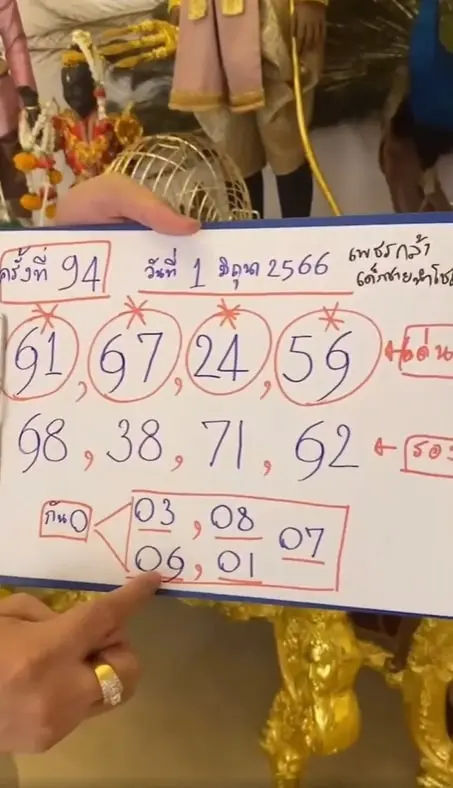 ครั้งที่ 94 วันที่ 1 มิถุนา 2566 เพชรกล้า
เด็กชายนำโช
61, 67, 24, 56 เด่น
68, 38, 71, 62 รอง
กัน 0 03, 08 07
06, 01